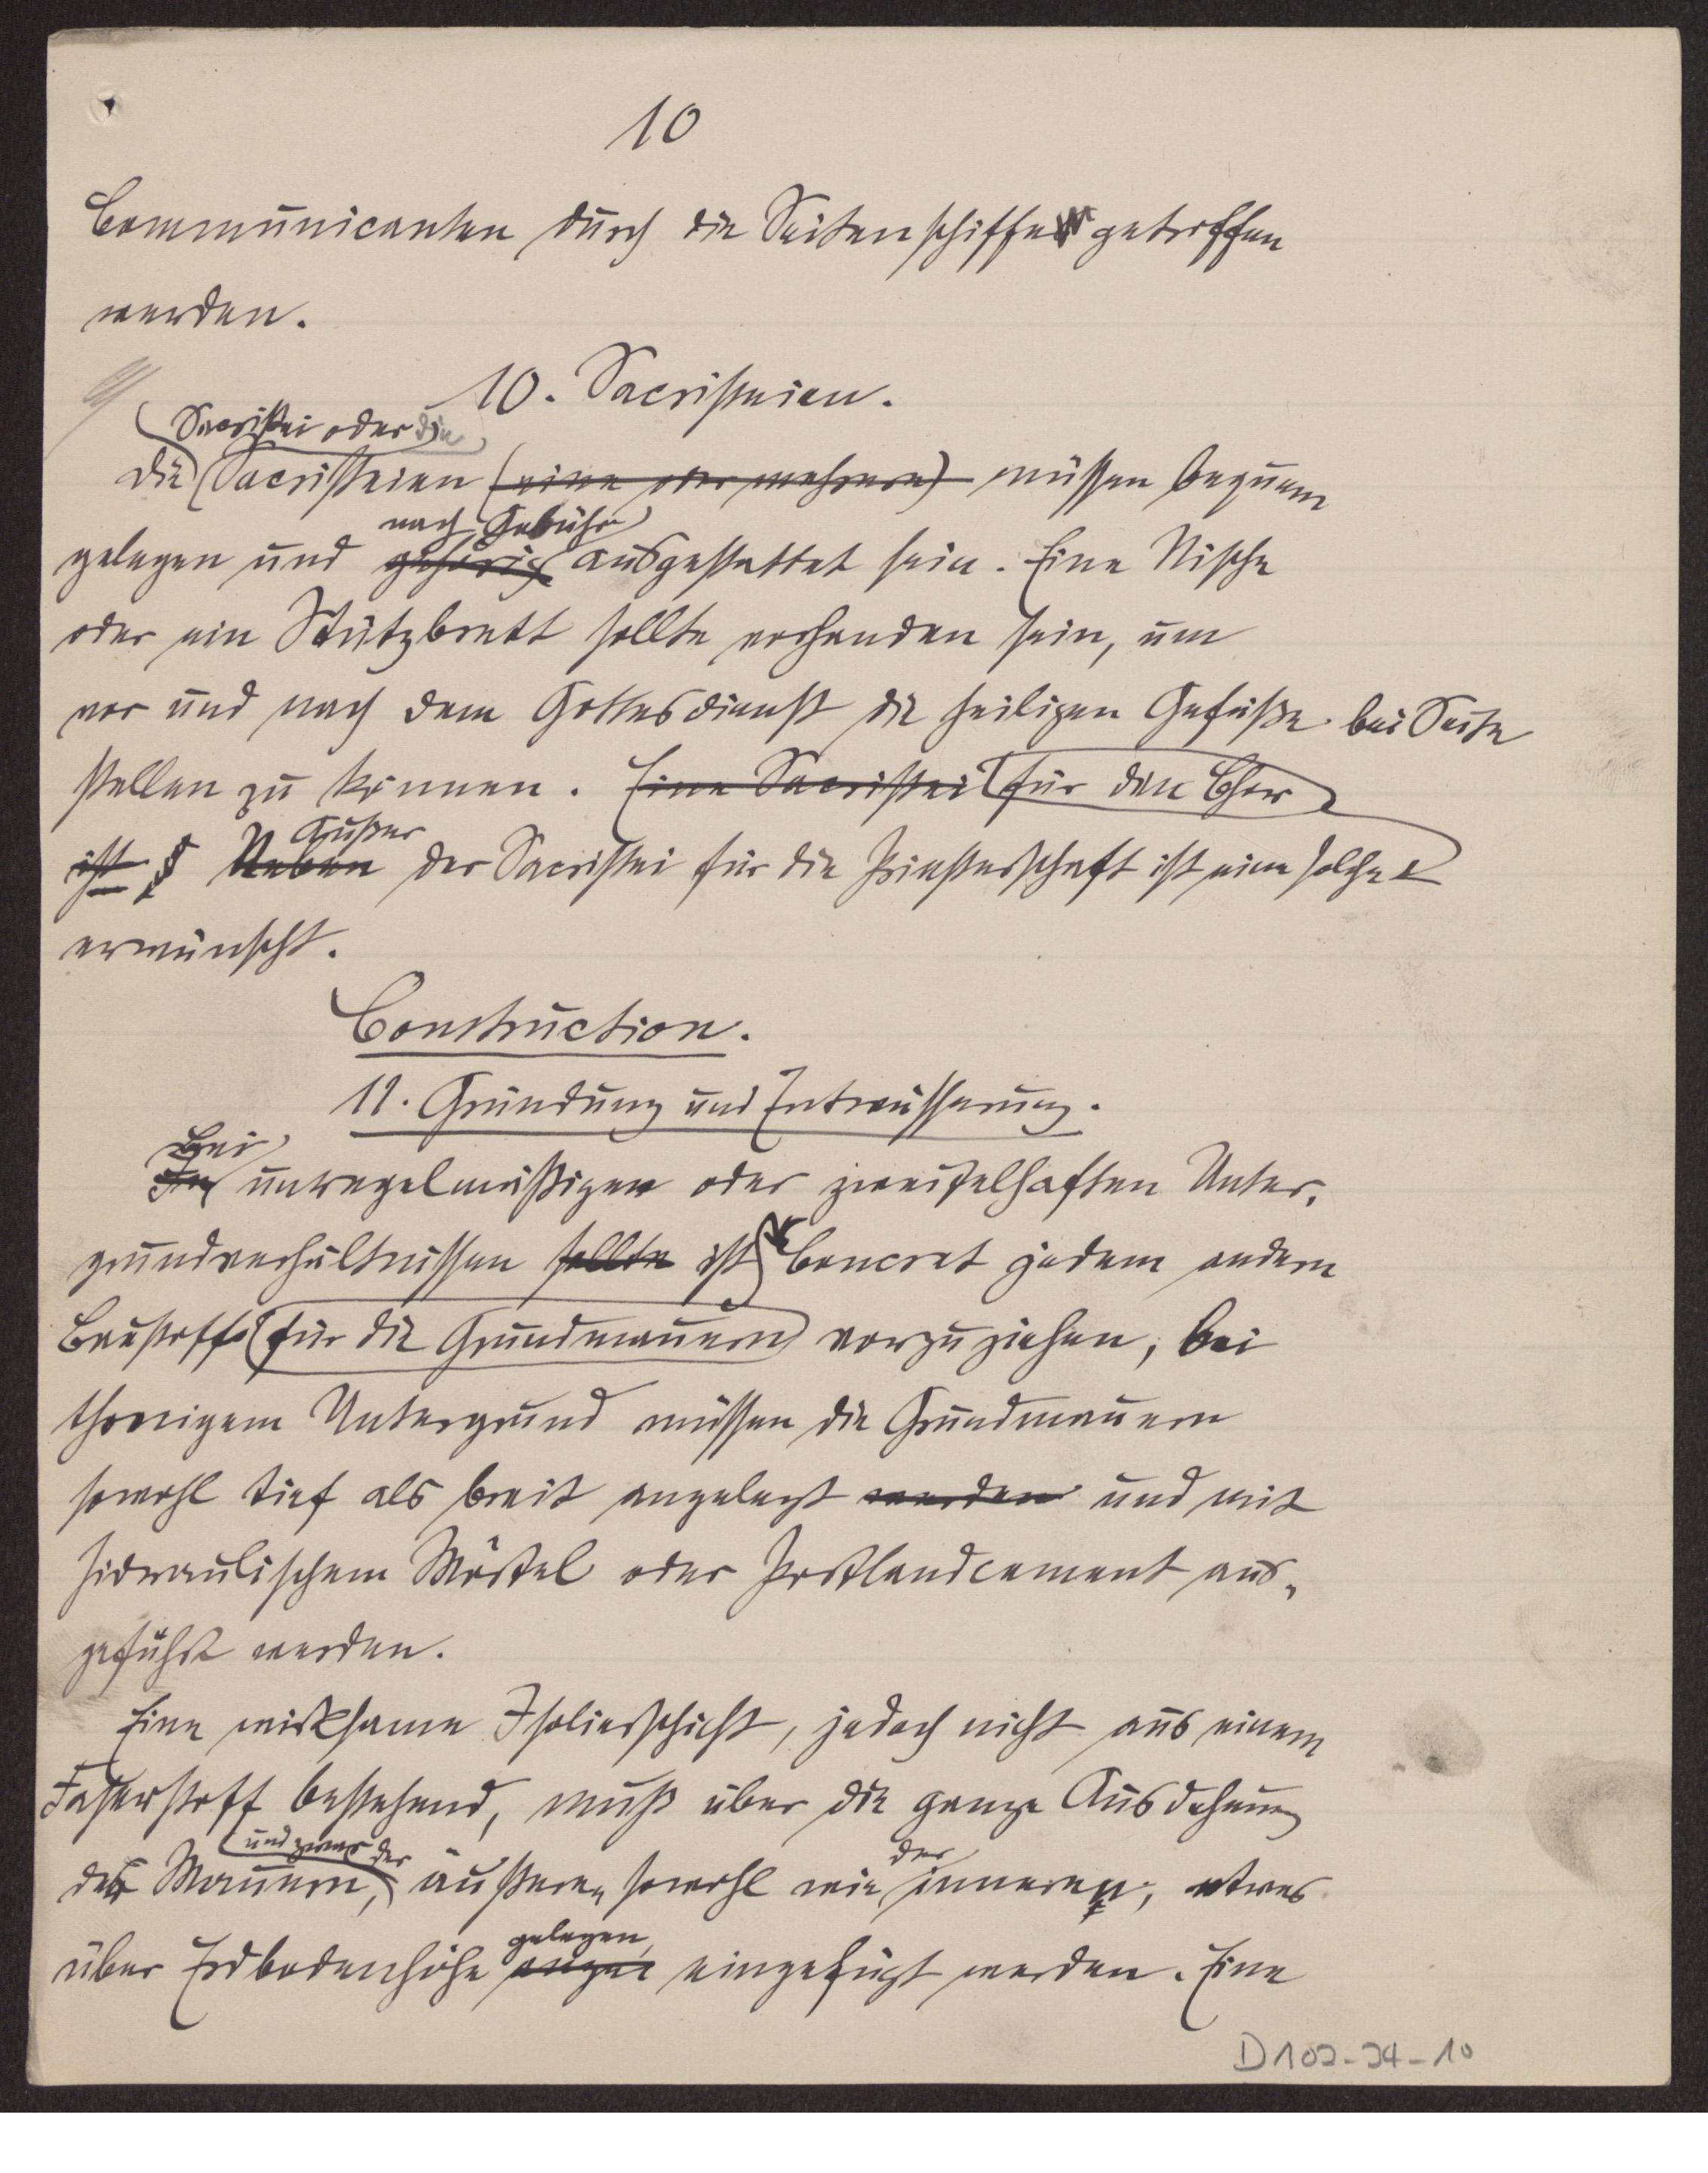 10
Communicanten durch die Seitenschiffe getroffen
werden.
10. Sacristeien.
Sacristei oder die
Die Sacristeien (eine oder mehrere) müssen bequem
nach Gebühr
gelegen und gehörig ausgestattet sein. Eine Nische
oder ein Stützbrett sollte vorhanden sein, um
vor und nach dem Gottesdienst die heiligen Gefäße bei Seite
stellen zu können. Eine Sacristei für den Chor
Außer
ist Neben der Sacristei für die Priesterschaft ist eine solche
erwünscht.
Construction.
11. Gründung und Entwässerung.
Bei
In unregelmäßigen oder zweifelhaften Unter-
grundverhältnissen sollte ist Concret jedem andern
Baustoffe für die Grundmauern vorzuziehen, bei
thonigem Untergrund müssen die Grundmauern
sowohl tief als breit angelegt werden und mit
hidraulischem Mörtel oder Portlandcement aus-
geführt werden.
Eine wirksame Isolierschicht, jedoch nicht aus einem
Faserstoff bestehend, muß über die ganze Ausdehnung
und zwar der der
der Mauern, äußeren sowohl wie inneren, etwas
gelegen,
über Erdbodenhöhe eingefügt werden. Eine
D102-34-10